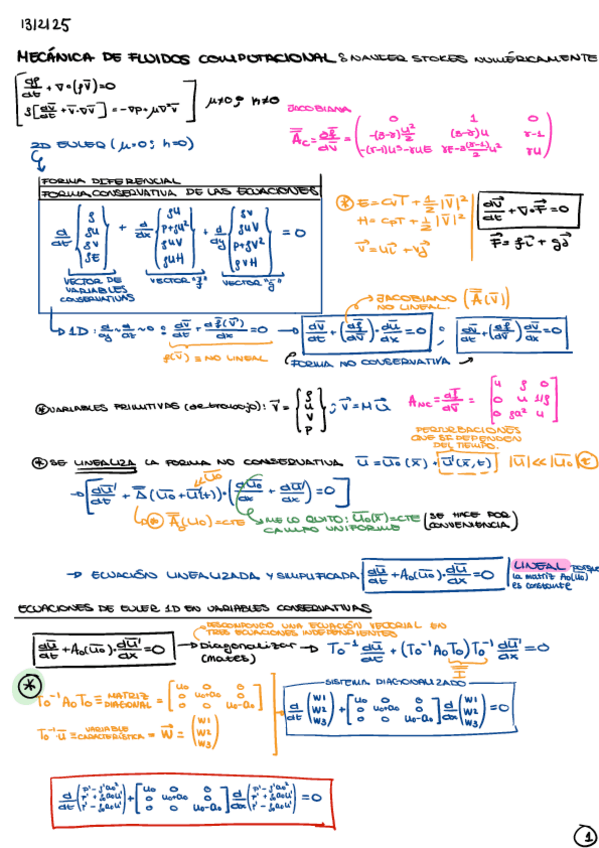 13/2/25
MECÁNICA DE FLUIDOS COMPUTACIONAL & NAVIER STOKES NUMÉRICAMENTE
dρ/dt + ∇·(ρv̄) = 0
ρ[dv̄/dt + v̄·∇v̄] = -∇p + μ∇²v̄
μ≠0; k≠0
JACOBIANA
Ā_c = df̄/dV̄ = ( 0 1 0
-(3-γ)u²/2 (3-γ)u γ-1
-(γ-1)u³-γuE γE-3(γ-1)/2 u² γu )
2D EULER (μ=0; k=0)
FORMA DIFERENCIAL
FORMA CONSERVATIVA DE LAS ECUACIONES
d/dt {ρ ρu ρv ρE} + d/dx {ρu p+ρu² ρuv ρuH} + d/dy {ρv ρuv p+ρv² ρvH} = 0
VECTOR DE VARIABLES CONSERVATIVAS
VECTOR "f"
VECTOR "g"
* E = CvT + 1/2 |V̄|²
H = CpT + 1/2 |V̄|²
V⃗ = ui⃗ + vj⃗
dU⃗/dt + ∇·F⃗ = 0
F⃗ = fi⃗ + gj⃗
JACOBIANO NO LINEAL. (Ā(V̄))
→ 1D: d/dy ~ d/dt ~ 0 : dV̄/dt + df̄(V̄)/dx = 0 → dV̄/dt + (df̄/dV̄)·dū/dx = 0 ; dv̄/dt + (df̄/dV̄) dv̄/dx = 0
f(V̄) ≡ NO LINEAL
FORMA NO CONSERVATIVA
* VARIABLES PRIMITIVAS (de trabajo): V̄ = {ρ u v p} ; V̄ = M Ū
A_NC = df̄/dV̄ = [u ρ 0
0 u 1/ρ
0 ρa² u]
PERTURBACIONES QUE SI DEPENDEN DEL TIEMPO.
* SE LINEALIZA LA FORMA NO CONSERVATIVA ū = ū₀(x̄) + ū'(x̄,t) |ū| << |ū₀|
ū₀
→ [dū'/dt + Ā(ū₀+ū'(t))·(dū₀/dx + dū'/dx) = 0]
* Ā₀(ū₀) = CTE
ME LO QUITO: ū₀(x̄) = CTE (SE HACE POR CONVENIENCIA)
CAMPO UNIFORME
→ ECUACIÓN LINEALIZADA Y SIMPLIFICADA dū/dt + A₀(ū₀)·dū/dx = 0
LINEAL porque la matriz A₀(ū₀) es constante
ECUACIONES DE EULER 1D EN VARIABLES CONSERVATIVAS
DESCOMPONDO UNA ECUACIÓN VECTORIAL EN TRES ECUACIONES INDEPENDIENTES
dū/dt + A₀(ū₀)·dū'/dx = 0 → Diagonalizar (mates) → T₀⁻¹ dū/dt + (T₀⁻¹A₀T₀) T₀⁻¹ dū'/dx = 0
SISTEMA DIAGONALIZADO
* T₀⁻¹A₀T₀ ≡ MATRIZ DIAGONAL = [u₀ 0 0
0 u₀+a₀ 0
0 0 u₀-a₀]
T₀⁻¹·ū ≡ VARIABLE CARACTERÍSTICA = W⃗ = (w1 w2 w3)
d/dt (w1 w2 w3) + [u₀ 0 0
0 u₀+a₀ 0
0 0 u₀-a₀] d/dx (w1 w2 w3) = 0
d/dt (p'-ρ'a₀² p'+ρ₀a₀u' p'-ρ₀a₀u') + [u₀ 0 0
0 u₀+a₀ 0
0 0 u₀-a₀] d/dx (p'-ρ'a₀² p'+ρ₀a₀u' p'-ρ₀a₀u') = 0
1